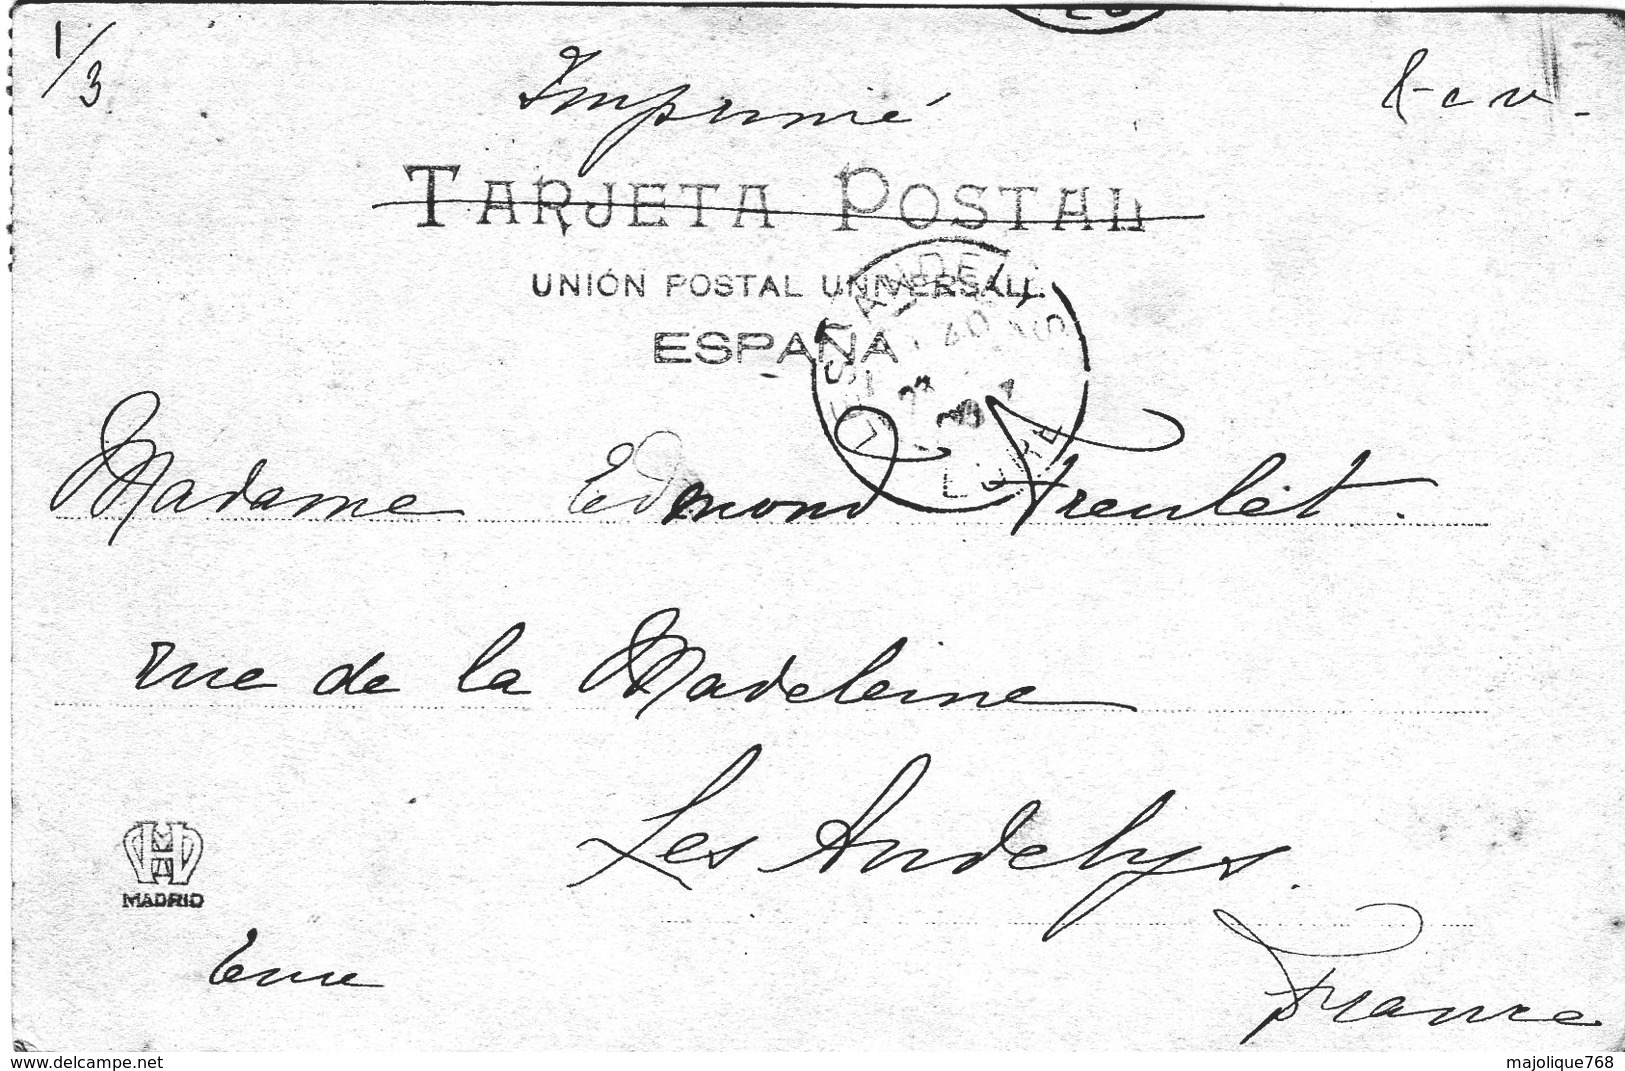 1/3
Imprimé
TARJETA POSTAL
UNIÓN POSTAL UNIVERSAL.
ESPAÑA
LES ANDELYS
EURE
Madame Edmond Treulet.
rue de la Madeleine
Les Andelys.
MADRID
Eure
France
www.delcampe.net
majolique768